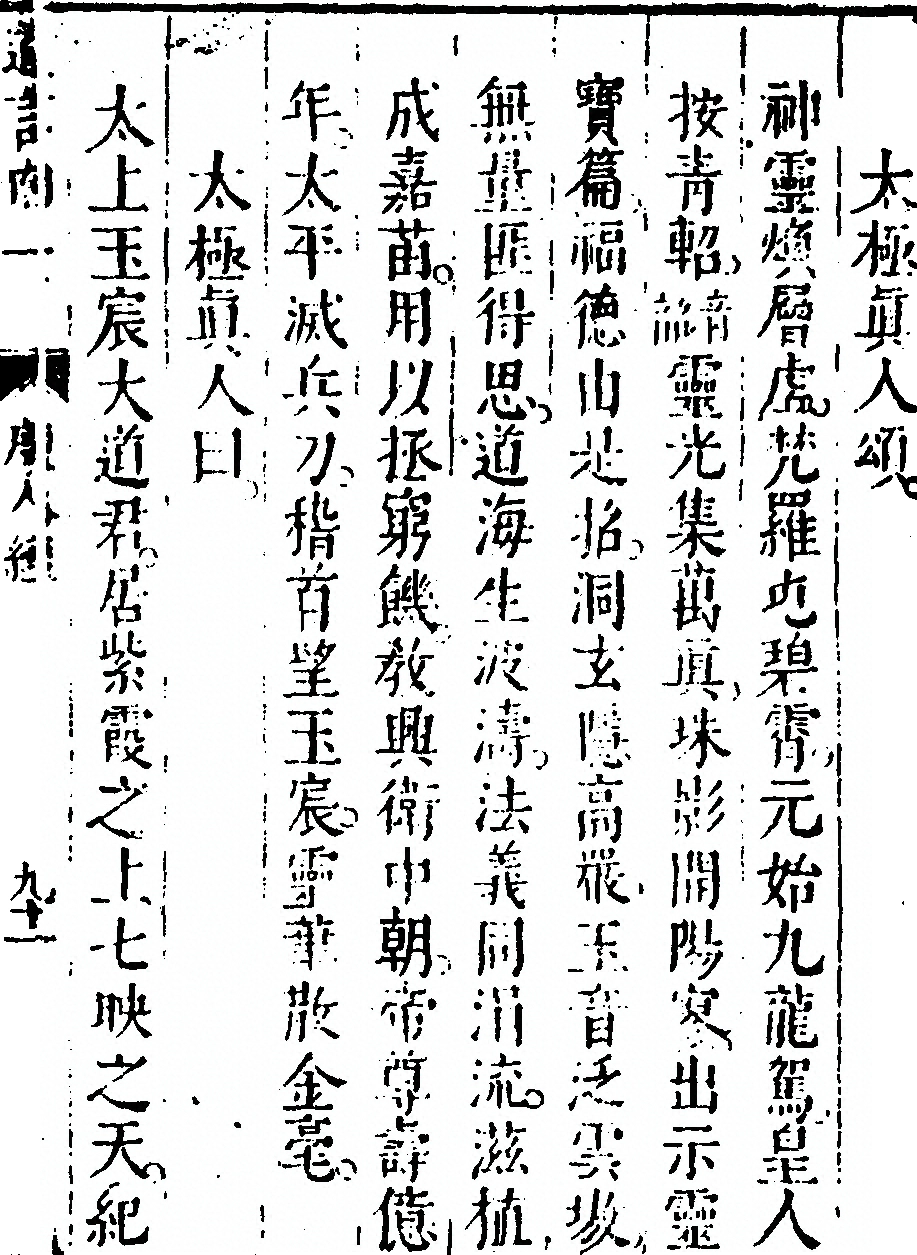 太極真人頌
神靈煥層虛梵羅屯碧霄元始九龍駕皇人
按青軺諦靈光集萬真珠影開陽寥出示靈
寶篇福德山是招洞玄隱高眾玉音泛雲璈
無量匪得思道海生波濤法義同涓流滋植
成嘉苗用以拯窮饑教興衛中朝帝尊壽億
年太平滅兵刀稽首望玉宸雪華散金毫
太極真人曰
太上玉宸大道君居紫霞之上七映之天紀
道言內一 度人經 九十一